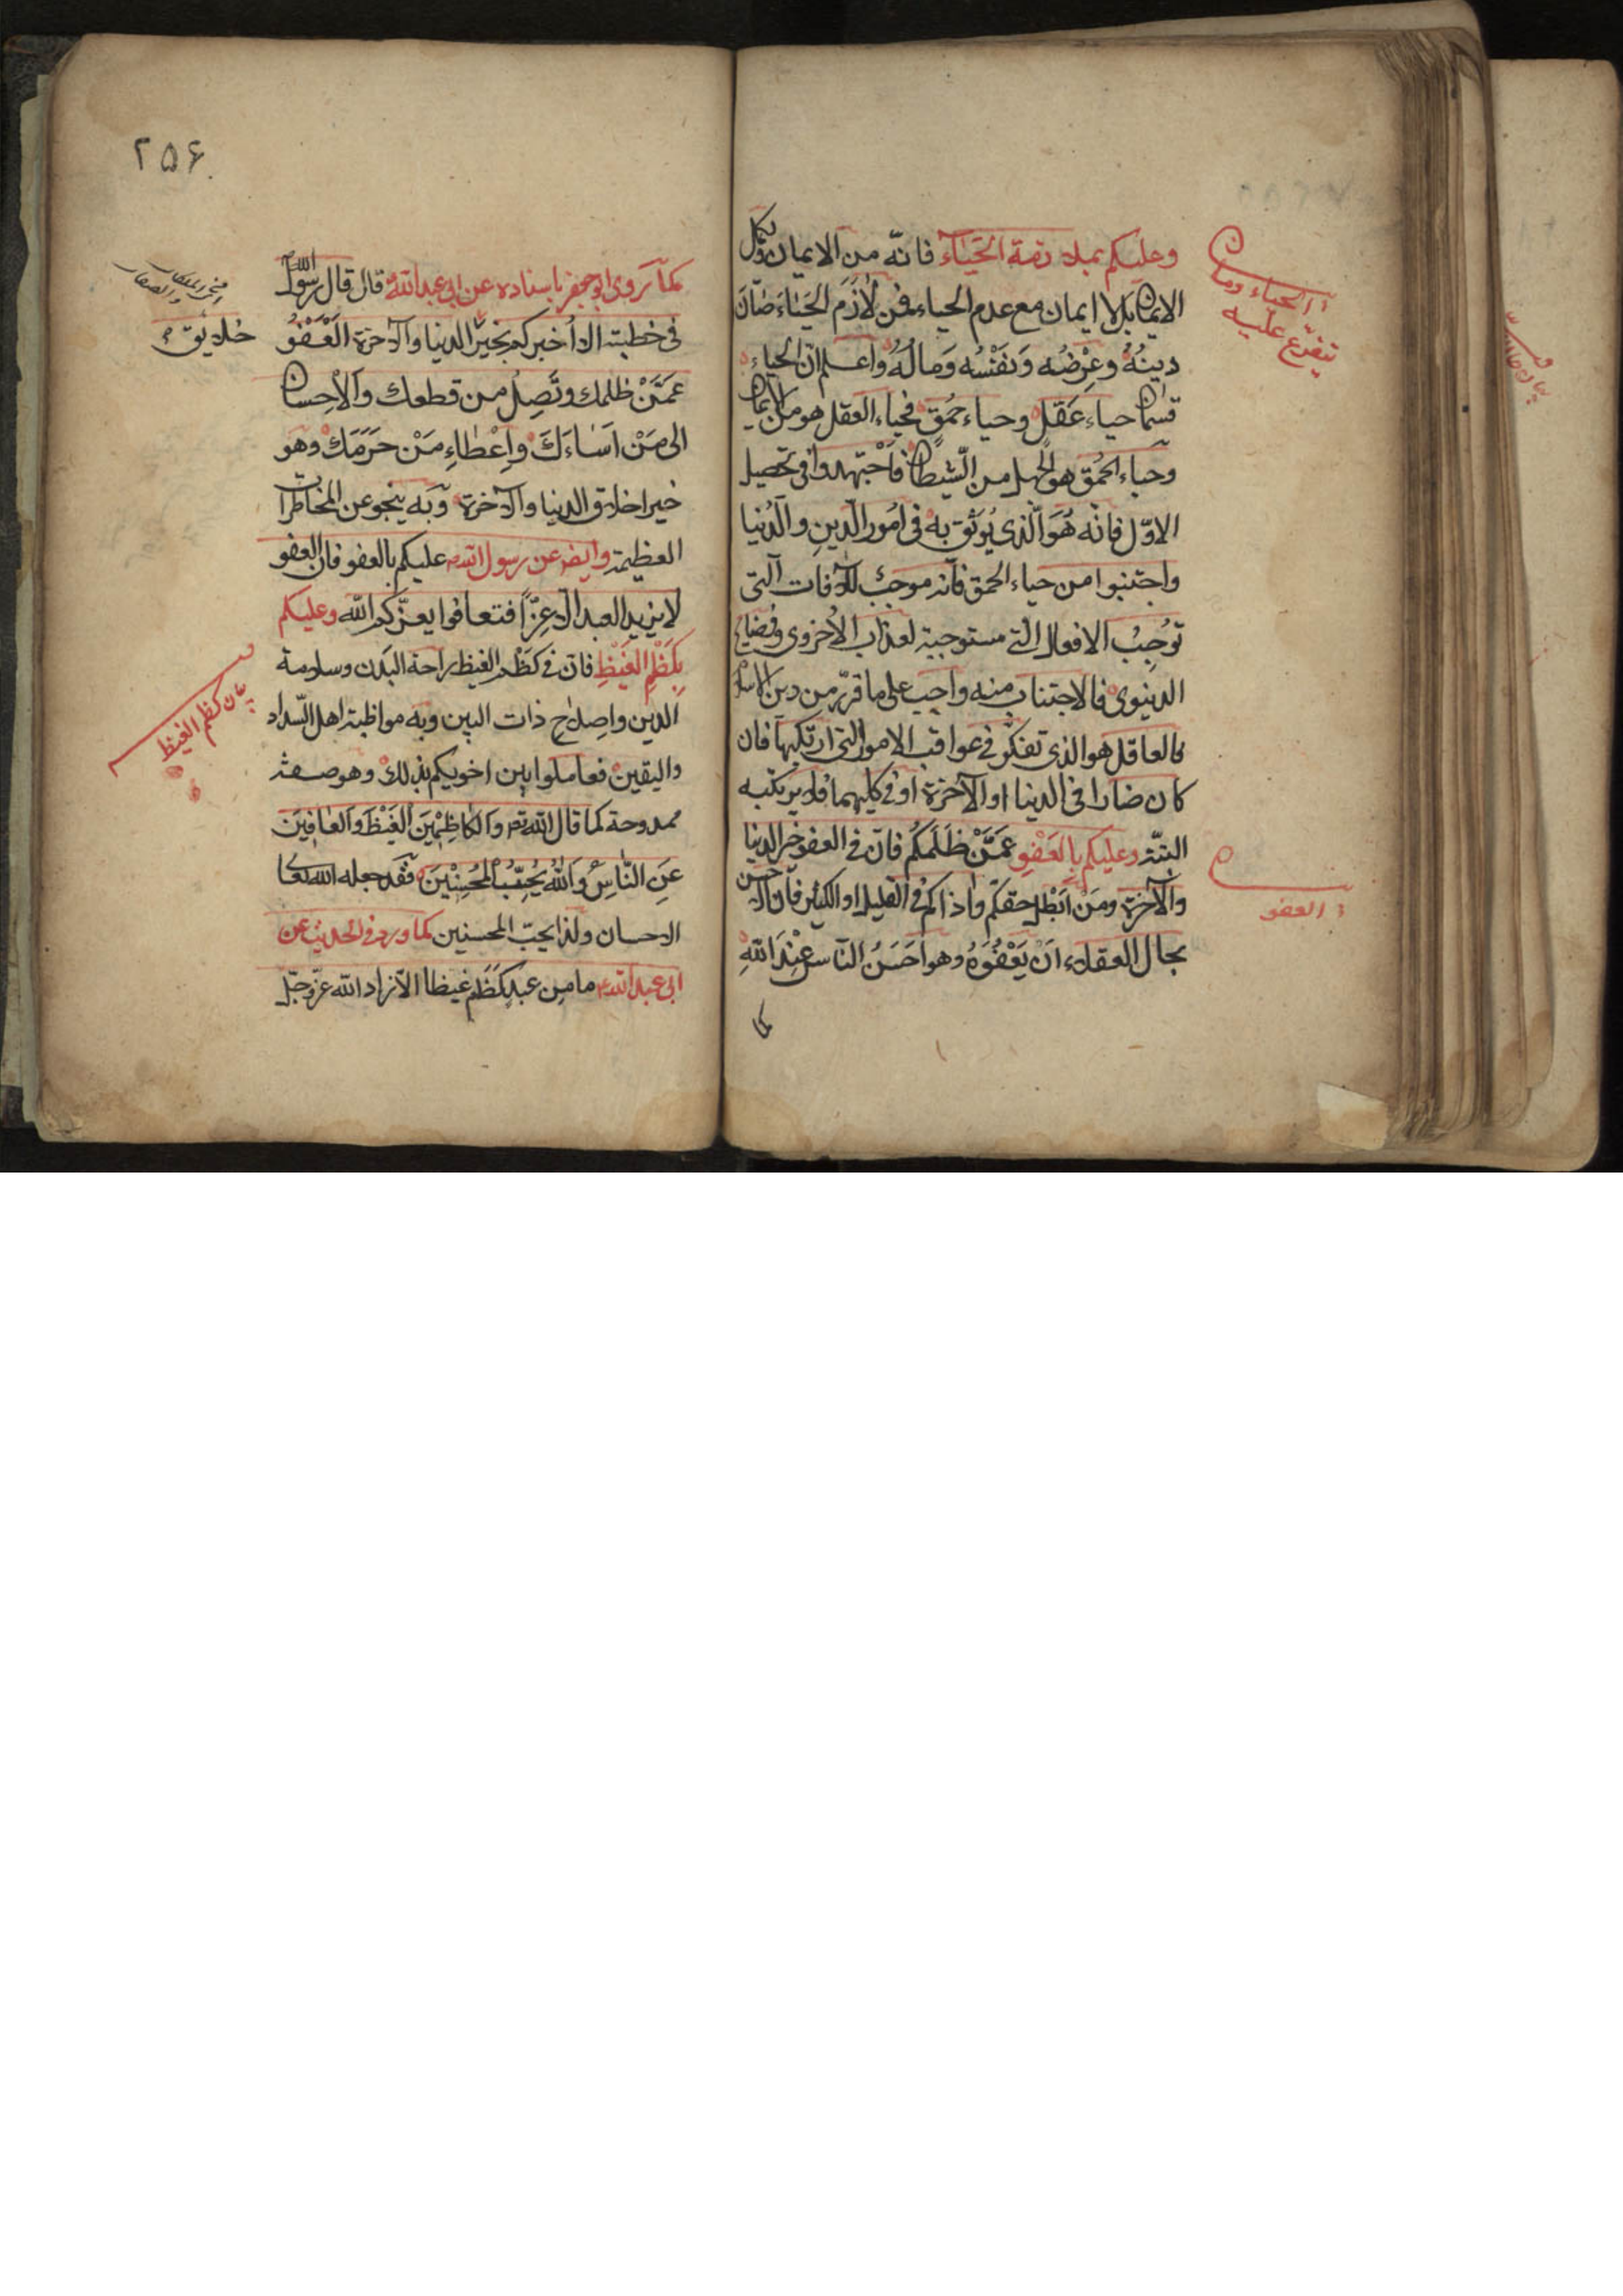 وعليكم بملازمة الحَيَاء فانّه من الايمان وكمال
الايمان بل لا ايمان مع عدم الحياء فمن لازَمَ الحَيَاءَ صَانَ
دينَهُ وعِرْضُه وَنَفْسُه وَمَالُهُ واعلم انّ الحياء
قسمان حياء عَقْل وحياء حُمْقٍ فحياء العقل هو من الايمان
وحياء الحُمْق هو الجهل من الشّيطان فاجْتَهِدوا فى تحصيل
الاوّل فانّه هُوَ الّذى يُوثَق به فى اُمُور الدّينِ والدُنيا
واجتنبوا من حياء الحمق فانّه موجبٌ للآفات الّتى
توُجِبُ الافعال الّتى مستوجبة لعذاب الاُخروى وفضايح
الدينوى فالاجتناب منه واجب على ما قرّر من دين الاسلام
فالعاقل هو الذى تفكّر فى عواقب الامور الّتى ارتكبها فان
كان ضارا فى الدنيا او الآخرة او فى كليهما فلا يرتكبه
البتّة وعليكم بِالعَفْوِ عَمَّنْ ظَلَمَكُم فانّ فى العفو خير الدنيا
والآخرة ومَنْ اَبْطل حقكم واذاكم فى القليل او الكثير فانّ الاحسن
بحال العقلاء اَنْ يَعْفُوَهُ وهو اَحْسَنُ النّاس عِنْدَ اللّهِ
كما
الحياء وما
يتفرّع عليه
العفو
۲۵۶
كما رَوى ابو جعفر باسناده عن ابى عبد اللّه قال قال رسول اللّه
فى خطبته الا اُخبركم بخير الدنيا والآخرة العَفْوُ
عَمَّنْ ظلمك وتَصِلُ من قطعك والاِحسان
الى مَنْ اَسَاءَكَ واِعْطاءِ مَنْ حَرَمَكَ وهو
خير اخلاق الدنيا والآخرة وبه ينجو عن المخاطرات
العظيمة وايض عن رسول اللّه عليكم بالعفو فان العفو
لا يزيد العبد الّا عِزّاً فتعافوا يعزّكم اللّه وعليكم
بِكَظْمِ الغَيْظِ فانّ فى كَظْم الغيظ راحة البدن وسلامة
الدين واِصلاح ذات البين وبه مواظبة اهل السّداد
واليقين فعاملوا بين اخويكم بذلك وهو صفة
ممدوحة كما قال اللّه تع وَالكاظِمْينَ الغَيْظَ وَالعافِينَ
عَنِ النّاسِ وَاللّهُ يُحِبّ المُحْسِنْينَ فقد جعله اللّه تعا
الاحسان ولذا يحبّ المحسنين كما ورد فى الحديث عن
ابى عبد اللّه ما من عبد كَظَم غيظا الّا زاد اللّه عزّ وجلّ
خلايق
بيان كظم الغيظ